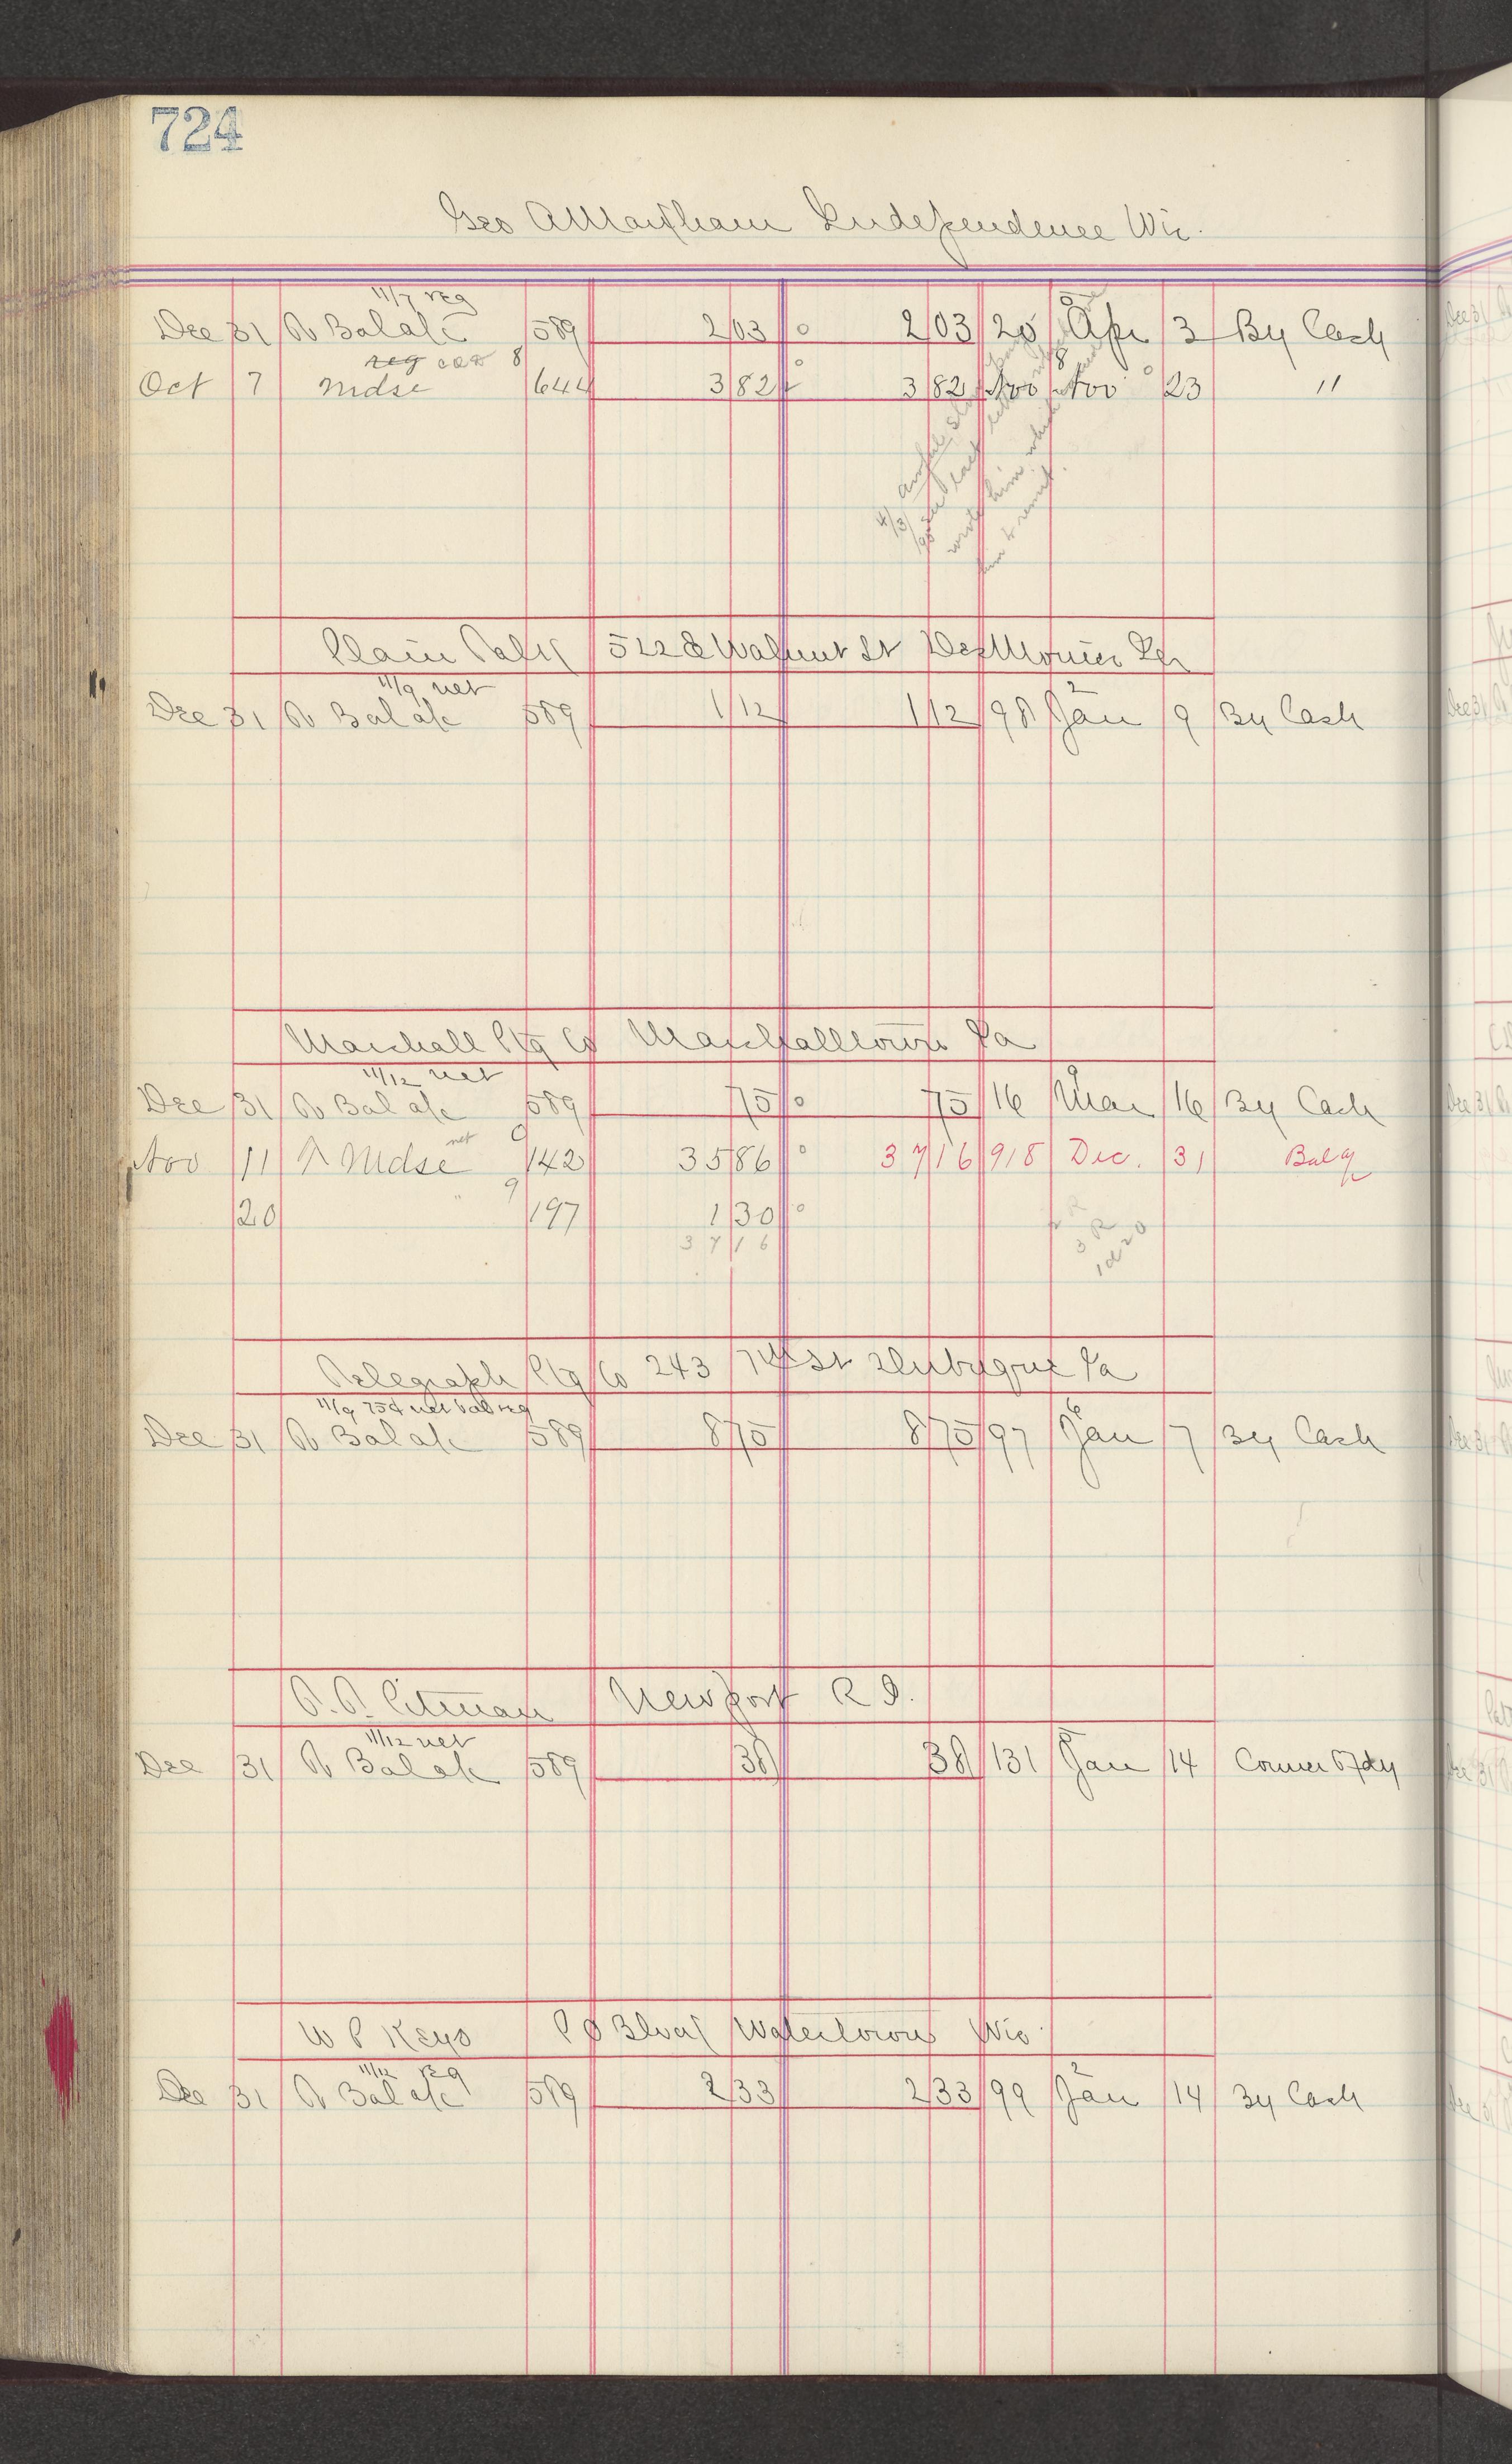 724
Geo A Markham Independence Wis.
11/7 reg
Dec 31 To Bal a/c 589 2 03 203 20 Apr 3 By Cash
reg 8
Oct 7 Mdse 644 3 82 3 82 Nov Nov 23 "
4/3 awful
wrote him which
him to remit.
Plain Talk 522 E Walnut St Des Moines Ia
11/9 net 2
Dec 31 To Bal a/c 589 1 12 1 12 98 Jan 9 By Cash
Marshall Ptg Co Marshalltown Ia
11/12 net 9
Dec 31 To Bal a/c 589 75 75 16 Mar 16 By Cash
net 9
Nov 11 To Mdse 142 35 86 37 16 918 Dec. 31 Bal
9
20 " 197 1 30
37 16
Telegraph Ptg Co 243 7th St Dubuque Ia
11/9 75¢ net bal reg 6
Dec 31 To Bal a/c 589 8 75 8 75 97 Jan 7 By Cash
T. T. Pitman Newport R I.
11/12 net
Dec 31 To Bal a/c 589 38 38 131 Jan 14 Conner Fdy
W P Keyo P O Watertown Wis
11/12 reg 2
Dec 31 To Bal a/c 589 2 33 2 33 99 Jan 14 By Cash